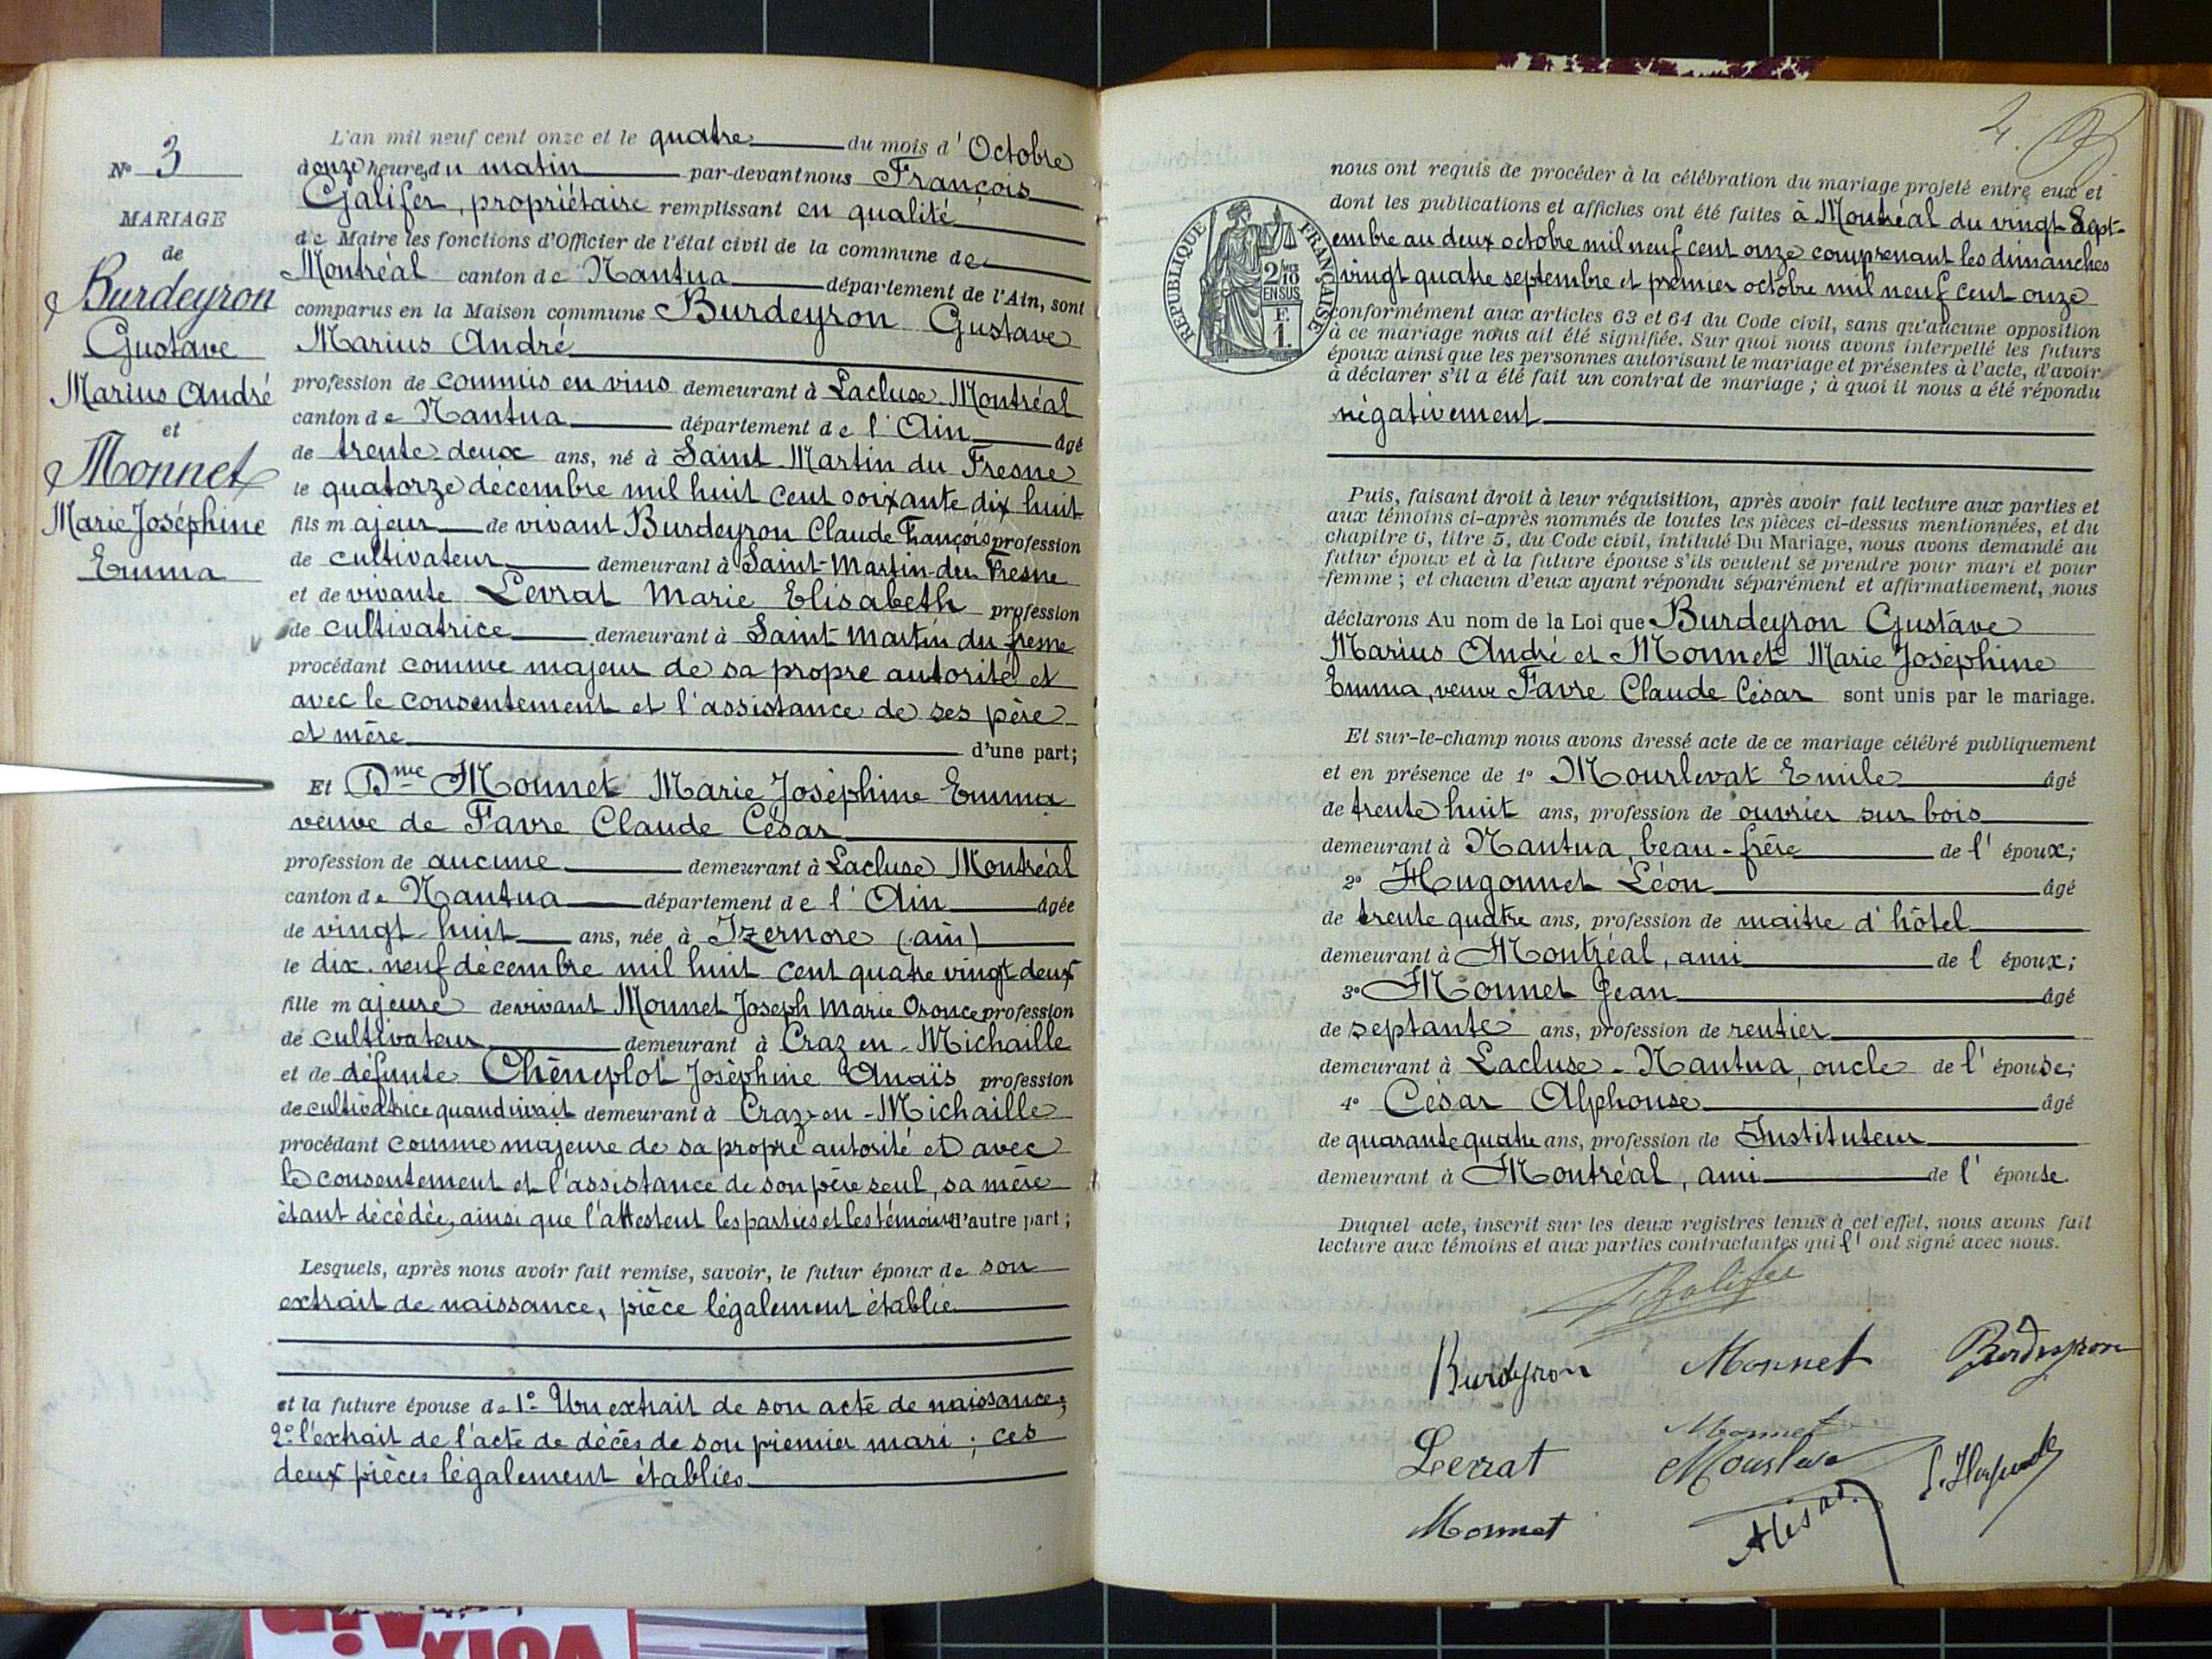 N° 3
MARIAGE
de
Burdeyron
Gustave
Marius André
et
Monnet
Marie Joséphine
Emma
L'an mil neuf cent onze et le quatre du mois d'Octobre
à onze heures du matin par-devant nous François
Galifer, propriétaire remplissant en qualité
de Maire les fonctions d'Officier de l'état civil de la commune de
Montréal canton de Nantua département de l'Ain, sont
comparus en la Maison commune Burdeyron Gustave
Marius André
profession de commis en vins demeurant à Lacluse Montréal
canton de Nantua département de l'Ain âgé
de trente-deux ans, né à Saint-Martin du Fresne
le quatorze décembre mil huit cent soixante dix huit
fils majeur de vivant Burdeyron Claude François profession
de cultivateur demeurant à Saint-Martin-du Fresne
et de vivante Levrat Marie Elisabeth profession
de cultivatrice demeurant à Saint Martin du fresne
procédant comme majeur de sa propre autorité et
avec le consentement et l'assistance de ses père
et mère d'une part;
Et Dme Monnet Marie Joséphine Emma
veuve de Favre Claude César
profession de aucune demeurant à Lacluse Montréal
canton de Nantua département de l'Ain âgée
de vingt-huit ans, née à Izernore (ain)
le dix-neuf décembre mil huit cent quatre vingt deux
fille majeure de vivant Monnet Joseph Marie Oronce profession
de cultivateur demeurant à Craz en-Michaille
et de défunte Chêneplot Joséphine Anaïs profession
de cultivatrice quand vivait demeurant à Craz-en-Michaille
procédant comme majeure de sa propre autorité et avec
le consentement et l'assistance de son père seul, sa mère
étant décédée, ainsi que l'attestent les parties et les témoins d'autre part;
Lesquels, après nous avoir fait remise, savoir, le futur époux de son
extrait de naissance, pièce légalement établie
et la future épouse de 1° Un extrait de son acte de naissance;
2° l'extrait de l'acte de décès de son premier mari; ces
deux pièces légalement établies
2.
nous ont requis de procéder à la célébration du mariage projeté entre eux et
dont les publications et affiches ont été faites à Montréal du vingt-Sept-
embre au deux octobre mil neuf cent onze comprenant les dimanches
vingt quatre septembre et premier octobre mil neuf cent onze
RÉPUBLIQUE FRANÇAISE
2/10
EN SUS
E
1.
conformément aux articles 63 et 64 du Code civil, sans qu'aucune opposition
à ce mariage nous ait été signifiée. Sur quoi nous avons interpellé les futurs
époux ainsi que les personnes autorisant le mariage et présentes à l'acte, d'avoir
à déclarer s'il a été fait un contrat de mariage; à quoi il nous a été répondu
négativement
Puis, faisant droit à leur réquisition, après avoir fait lecture aux parties et
aux témoins ci-après nommés de toutes les pièces ci-dessus mentionnées, et du
chapitre 6, titre 5, du Code civil, intitulé Du Mariage, nous avons demandé au
futur époux et à la future épouse s'ils veulent se prendre pour mari et pour
femme; et chacun d'eux ayant répondu séparément et affirmativement, nous
déclarons Au nom de la Loi que Burdeyron Gustave
Marius André et Monnet Marie Joséphine
Emma, veuve Favre Claude César sont unis par le mariage.
Et sur-le-champ nous avons dressé acte de ce mariage célébré publiquement
et en présence de 1° Mourlevat Emile âgé
de trente huit ans, profession de ouvrier sur bois
demeurant à Nantua, beau-frère de l'époux;
2° Hugonnet Léon âgé
de trente quatre ans, profession de maître d'hôtel
demeurant à Montréal, ami de l époux;
3° Monnet Jean âgé
de septante ans, profession de rentier
demeurant à Lacluse-Nantua, oncle de l'épouse;
4° César Alphonse âgé
de quarante quatre ans, profession de Instituteur
demeurant à Montréal, ami de l'épouse.
Duquel acte, inscrit sur les deux registres tenus à cet effet, nous avons fait
lecture aux témoins et aux parties contractantes qui l'ont signé avec nous.
Galifer
Burdeyron Monnet Burdeyron
Monnet
Levrat
Monnet
VOIX